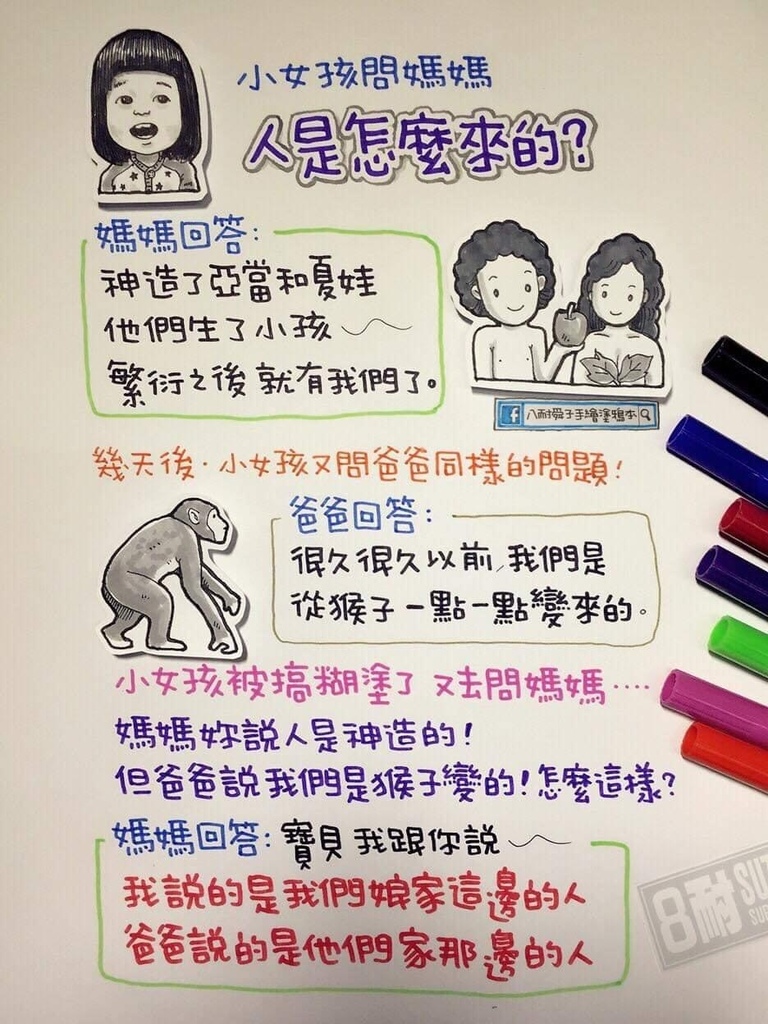 小女孩問媽媽
人是怎麼來的?
媽媽回答:
神造了亞當和夏娃
他們生了小孩
繁衍之後就有我們了。
八耐舜子手繪塗鴉本
幾天後.小女孩又問爸爸同樣的問題!
爸爸回答:
很久很久以前,我們是
從猴子一點一點變來的。
小女孩被搞糊塗了 又去問媽媽····
媽媽妳說人是神造的!
但爸爸說我們是猴子變的!怎麼這樣?
媽媽回答: 寶貝我跟你說
我說的是我們娘家這邊的人
爸爸說的是他們家那邊的人
8耐